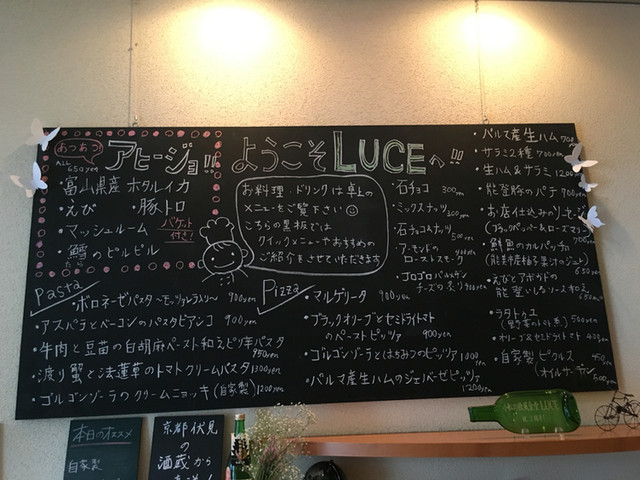 あつあつ!
アヒージョ!!
650yen
・富山県産 ホタルイカ
・えび ・豚トロ
・マッシュルーム
バケット付き!
・鱈のピルピル
たら
ようこそ LUCEへ!!
お料理・ドリンクは卓上の
メニューをご覧下さい
こちらの黒板では
クイックメニューやおすすめの
ご紹介をさせていただきます
・石チョコ 300yen
・ミックスナッツ
・石チョコ&ナッツ 500yen
・アーモンドの
ローストスモーク
・ゴロゴロパルメザン
チーズの炙り 900yen
・パルマ産生ハム
・サラミ2種 700yen
・生ハム&サラミ 1200
・能登豚のパテ 900yen
・お店仕込みのリエット
(ブラックペッパー&ローズマリー)
・鮮魚のカルパッチョ
650yen
・えびとアボカドの
650yen
・ラタトゥユ
500yen
・オリーブ&セミドライトマト
・自家製ピクルス
・オイルサーディン
500yen
Pasta
・ボロネーゼパスタ 900yen
・アスパラとベーコンのパスタビアンコ 900yen
・牛肉と豆苗の白胡麻ペースト和えピリ辛パスタ
950yen
・渡り蟹と法蓮草のトマトクリームパスタ 1300yen
・ゴルゴンゾーラのクリームニョッキ(自家製) 1200yen
Pizza
・マルゲリータ 900yen
・ブラックオリーブとセミドライトマト
のペーストピッツァ 900yen
・ゴルゴンゾーラとはちみつのピッツァ 1000yen
・パルマ産生ハムのジェノベーゼピッツァ
1200yen
本日のオススメ
自家製
京都伏見
の
酒蔵から
LUCE